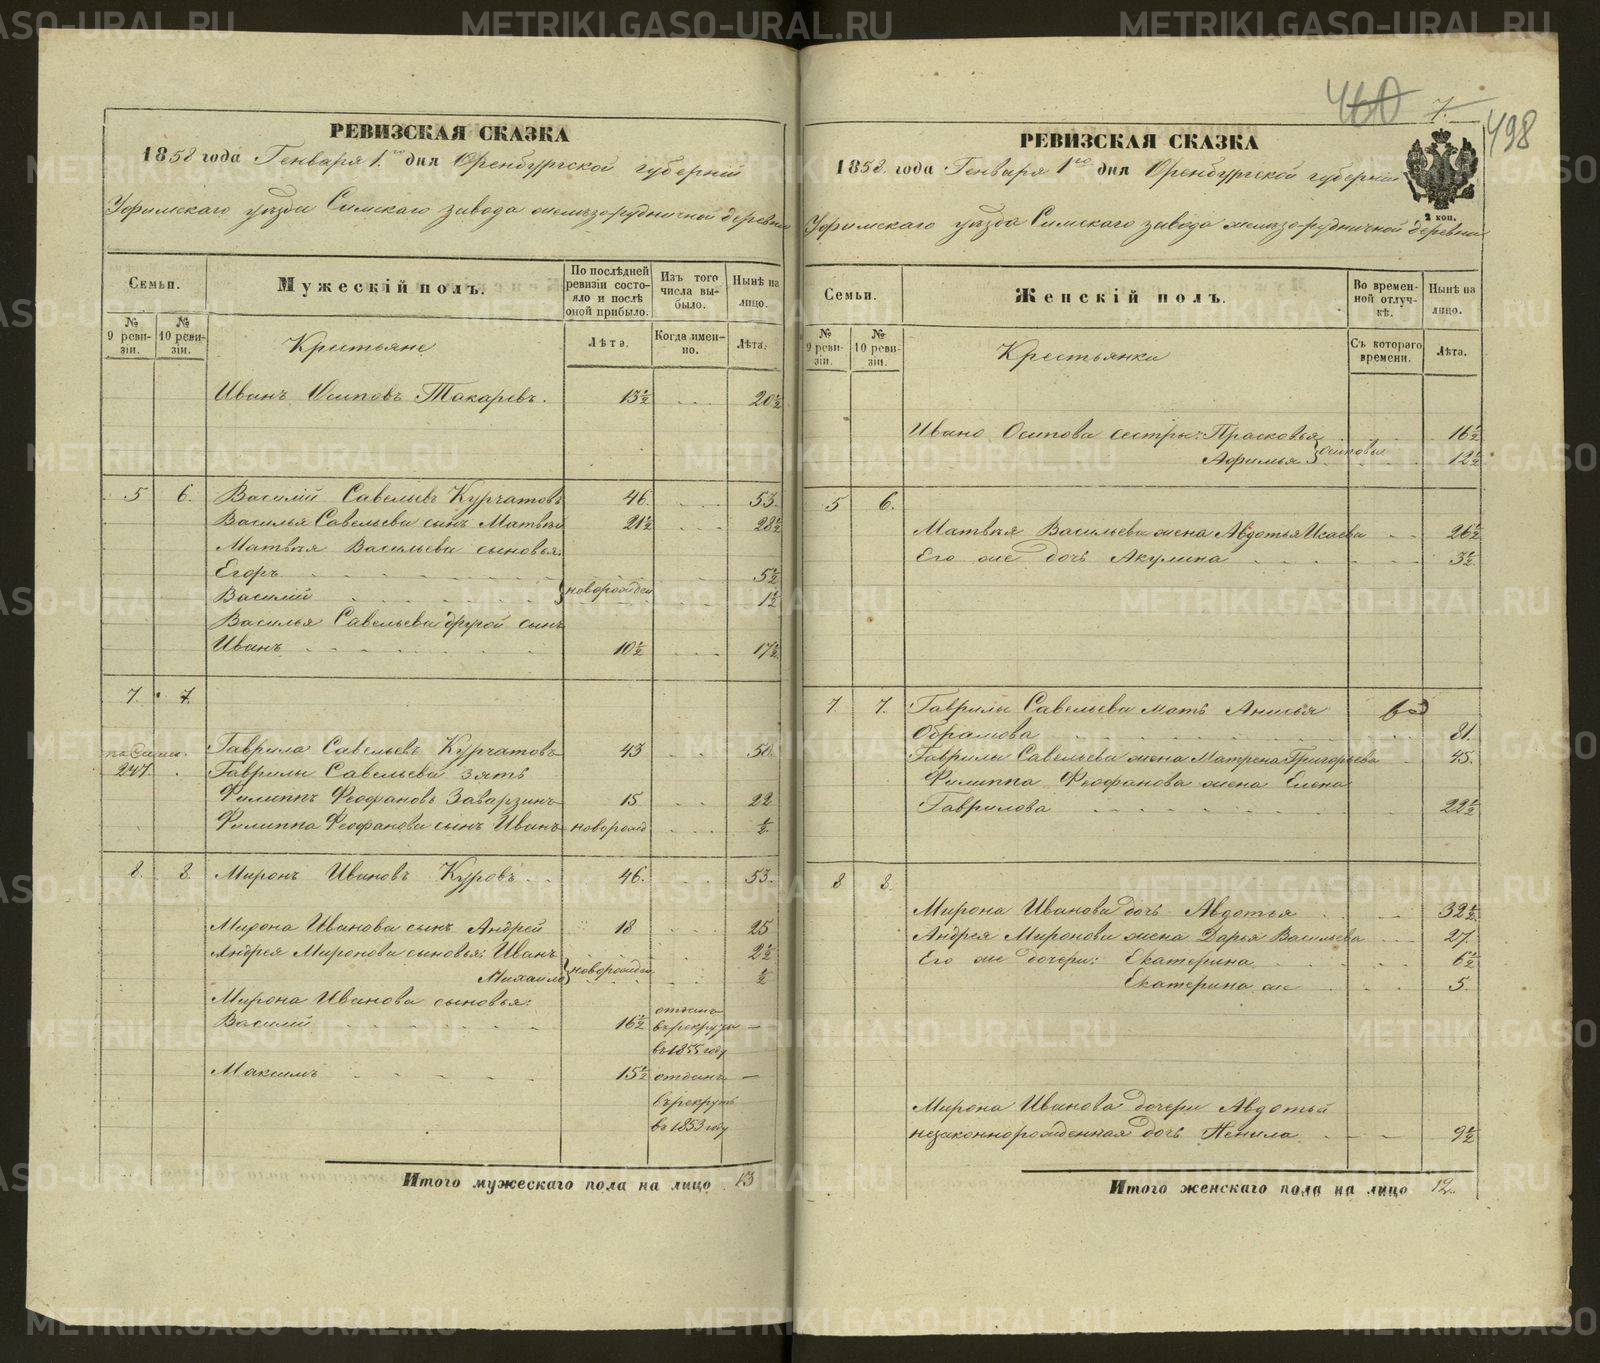 РЕВИЗСКАЯ СКАЗКА
1858 года Генваря 1го дня Оренбургской губерніи
Уфимскаго уѣзда Симскаго завода желѣзо-рудничной деревни
Семьи.
№ 9 ревизіи.
№ 10 ревизіи.
Мужескій полъ.
По послѣдней ревизіи состояло и послѣ оной прибыло.
Изъ того числа выбыло.
Нынѣ на лицо.
Лѣта.
Когда именно.
Лѣта.
Крестьяне
Иванъ Осиповъ Токаревъ. 13½ 20½
5 6. Василій Савельевъ Курчатовъ 46. 53.
Василья Савельева сынъ Матвѣй 21½ 28½
Матвѣя Васильева сыновья:
Егоръ 5½
Василій новорожден 1½
Василья Савельева другой сынъ
Иванъ 10½ 17½
7. 7.
Гаврила Савельевъ Курчатовъ 43 50.
247. Гаврилы Савельева зять
Филиппъ Феофановъ Заварзинъ 15 22
Филиппа Феофанова сынъ Иванъ новорожд ½
8. 8. Миронъ Ивановъ Куровъ 46. 53.
Мирона Иванова сынъ Андрей 18 25
Андрея Миронова сыновья: Иванъ 2½
Михаило новорожден ½
Мирона Иванова сыновья:
Василій 16½ отданъ въ рекруты въ 1855 году —
Максимъ 15½ отданъ въ рекруты въ 1853 году —
Итого мужескаго пола на лицо 13
460 7. 498
РЕВИЗСКАЯ СКАЗКА
1858. года Генваря 1го дня Оренбургской губерніи
2 коп.
Уфимскаго уѣзда Симскаго завода желѣзо-рудничной деревни
Семьи.
№ 9 ревизіи.
№ 10 ревизіи.
Женскій полъ.
Во временной отлучкѣ.
Нынѣ на лицо.
Съ котораго времени.
Лѣта.
Крестьянки
Ивана Осипова сестры: Прасковья 16½
Афимья Осиповы 12½
5 6.
Матвѣя Васильева жена Авдотья Исаева 26½
Его же дочь Акулина 3½
7. 7. Гаврилы Савельева мать Анисья
Обрамова 81.
Гаврилы Савельева жена Матрена Григорьева 45.
Филиппа Феофанова жена Елена
Гаврилова 22½
8 8.
Мирона Иванова дочь Авдотья 32½
Андрея Миронова жена Дарья Васильева 27.
Его же дочери: Екатерина 6½
Екатерина же 5.
Мирона Иванова дочери Авдотьи
незаконнорожденная дочь Ненила 9½
Итого женскаго пола на лицо 12.
METRIKI.GASO-URAL.RU